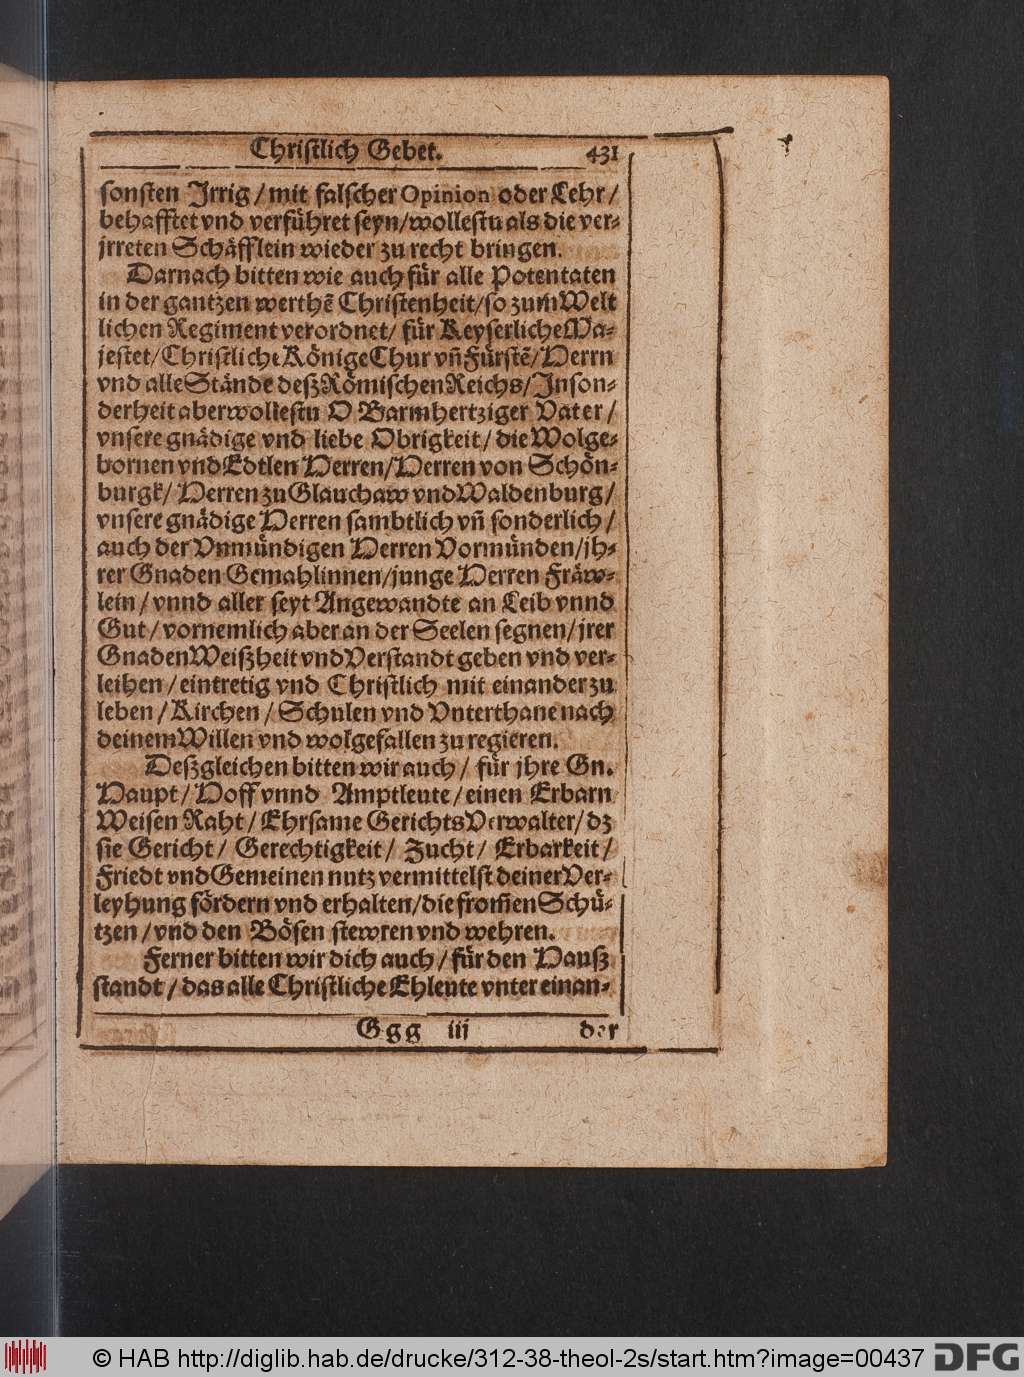 Chriſtlich Gebet. 431
ſonſten Jrrig / mit falſcher Opinion oder Lehr /
behafftet vnd verführet ſeyn / wolleſtu als die ver-
jrreten Schäfflein wieder zu recht bringen.
Darnach bitten wie auch für alle Potentaten
in der gantzen werthẽ Chriſtenheit / ſo zum Welt
lichen Regiment verordnet / für Keyſerliche Ma-
jeſtet / Chriſtliche Könige Chur vñ Fürſtẽ / Herrn
vnd alle Stände deß Römiſchen Reichs / Jnſon-
derheit aber wolleſtu O Barmhertziger Vater /
vnſere gnädige vnd liebe Obrigkeit / die Wolge-
bornen vnd Edtlen Herren / Herren von Schön-
burgk / Herren zu Glauchaw vnd Waldenburg /
vnſere gnädige Herren ſambtlich vñ ſonderlich /
auch der Vnmündigen Herren Vormünden / jh-
rer Gnaden Gemahlinnen / junge Herren Fräw-
lein / vnnd aller ſeyt Angewandte an Leib vnnd
Gut / vornemlich aber an der Seelen ſegnen / jrer
Gnaden Weißheit vnd Verſtandt geben vnd ver-
leihen / eintretig vnd Chriſtlich mit einander zu
leben / Kirchen / Schulen vnd Vnterthane nach
deinem Willen vnd wolgefallen zu regieren.
Deßgleichen bitten wir auch / für jhre Gn.
Haupt / Hoff vnnd Amptleute / einen Erbarn
Weiſen Raht / Ehrſame Gerichts Verwalter / dz
ſie Gericht / Gerechtigkeit / Zucht / Erbarkeit /
Friedt vnd Gemeinen nutz vermittelſt deiner Ver-
leyhung fördern vnd erhalten / die from̃en Schü-
tzen / vnd den Böſen ſtewren vnd wehren.
Ferner bitten wir dich auch / für den Hauß
ſtandt / das alle Chriſtliche Ehleute vnter einan-
Ggg iij der
© HAB http://diglib.hab.de/drucke/312-38-theol-2s/start.htm?image=00437 DFG